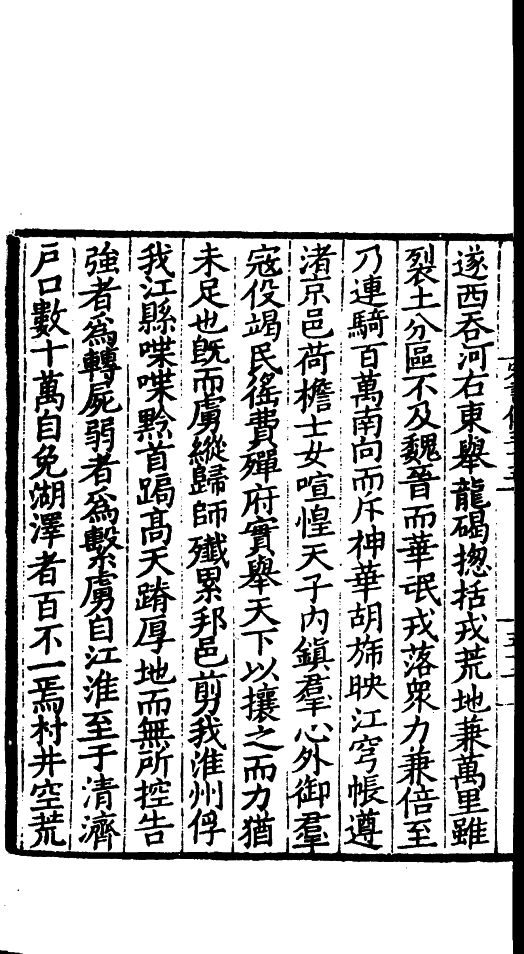 遂西吞河右東舉龍碣揔括戎荒地兼萬里雖
裂土分區不及魏晉而華氓戎落衆力兼倍至
乃連騎百萬南向而斥神華胡斾映江穹帳遵
渚京邑荷檐士女喧惶天子內鎮羣心外御羣
寇役竭民徭費殫府實舉天下以攘之而力猶
未足也旣而虜縱歸師殲累邦邑剪我淮州俘
我江縣喋喋黔首跼高天蹐厚地而無所控告
強者爲轉屍弱者爲繫虜自江淮至于清濟
戶口數十萬自免湖澤者百不一焉村井空荒